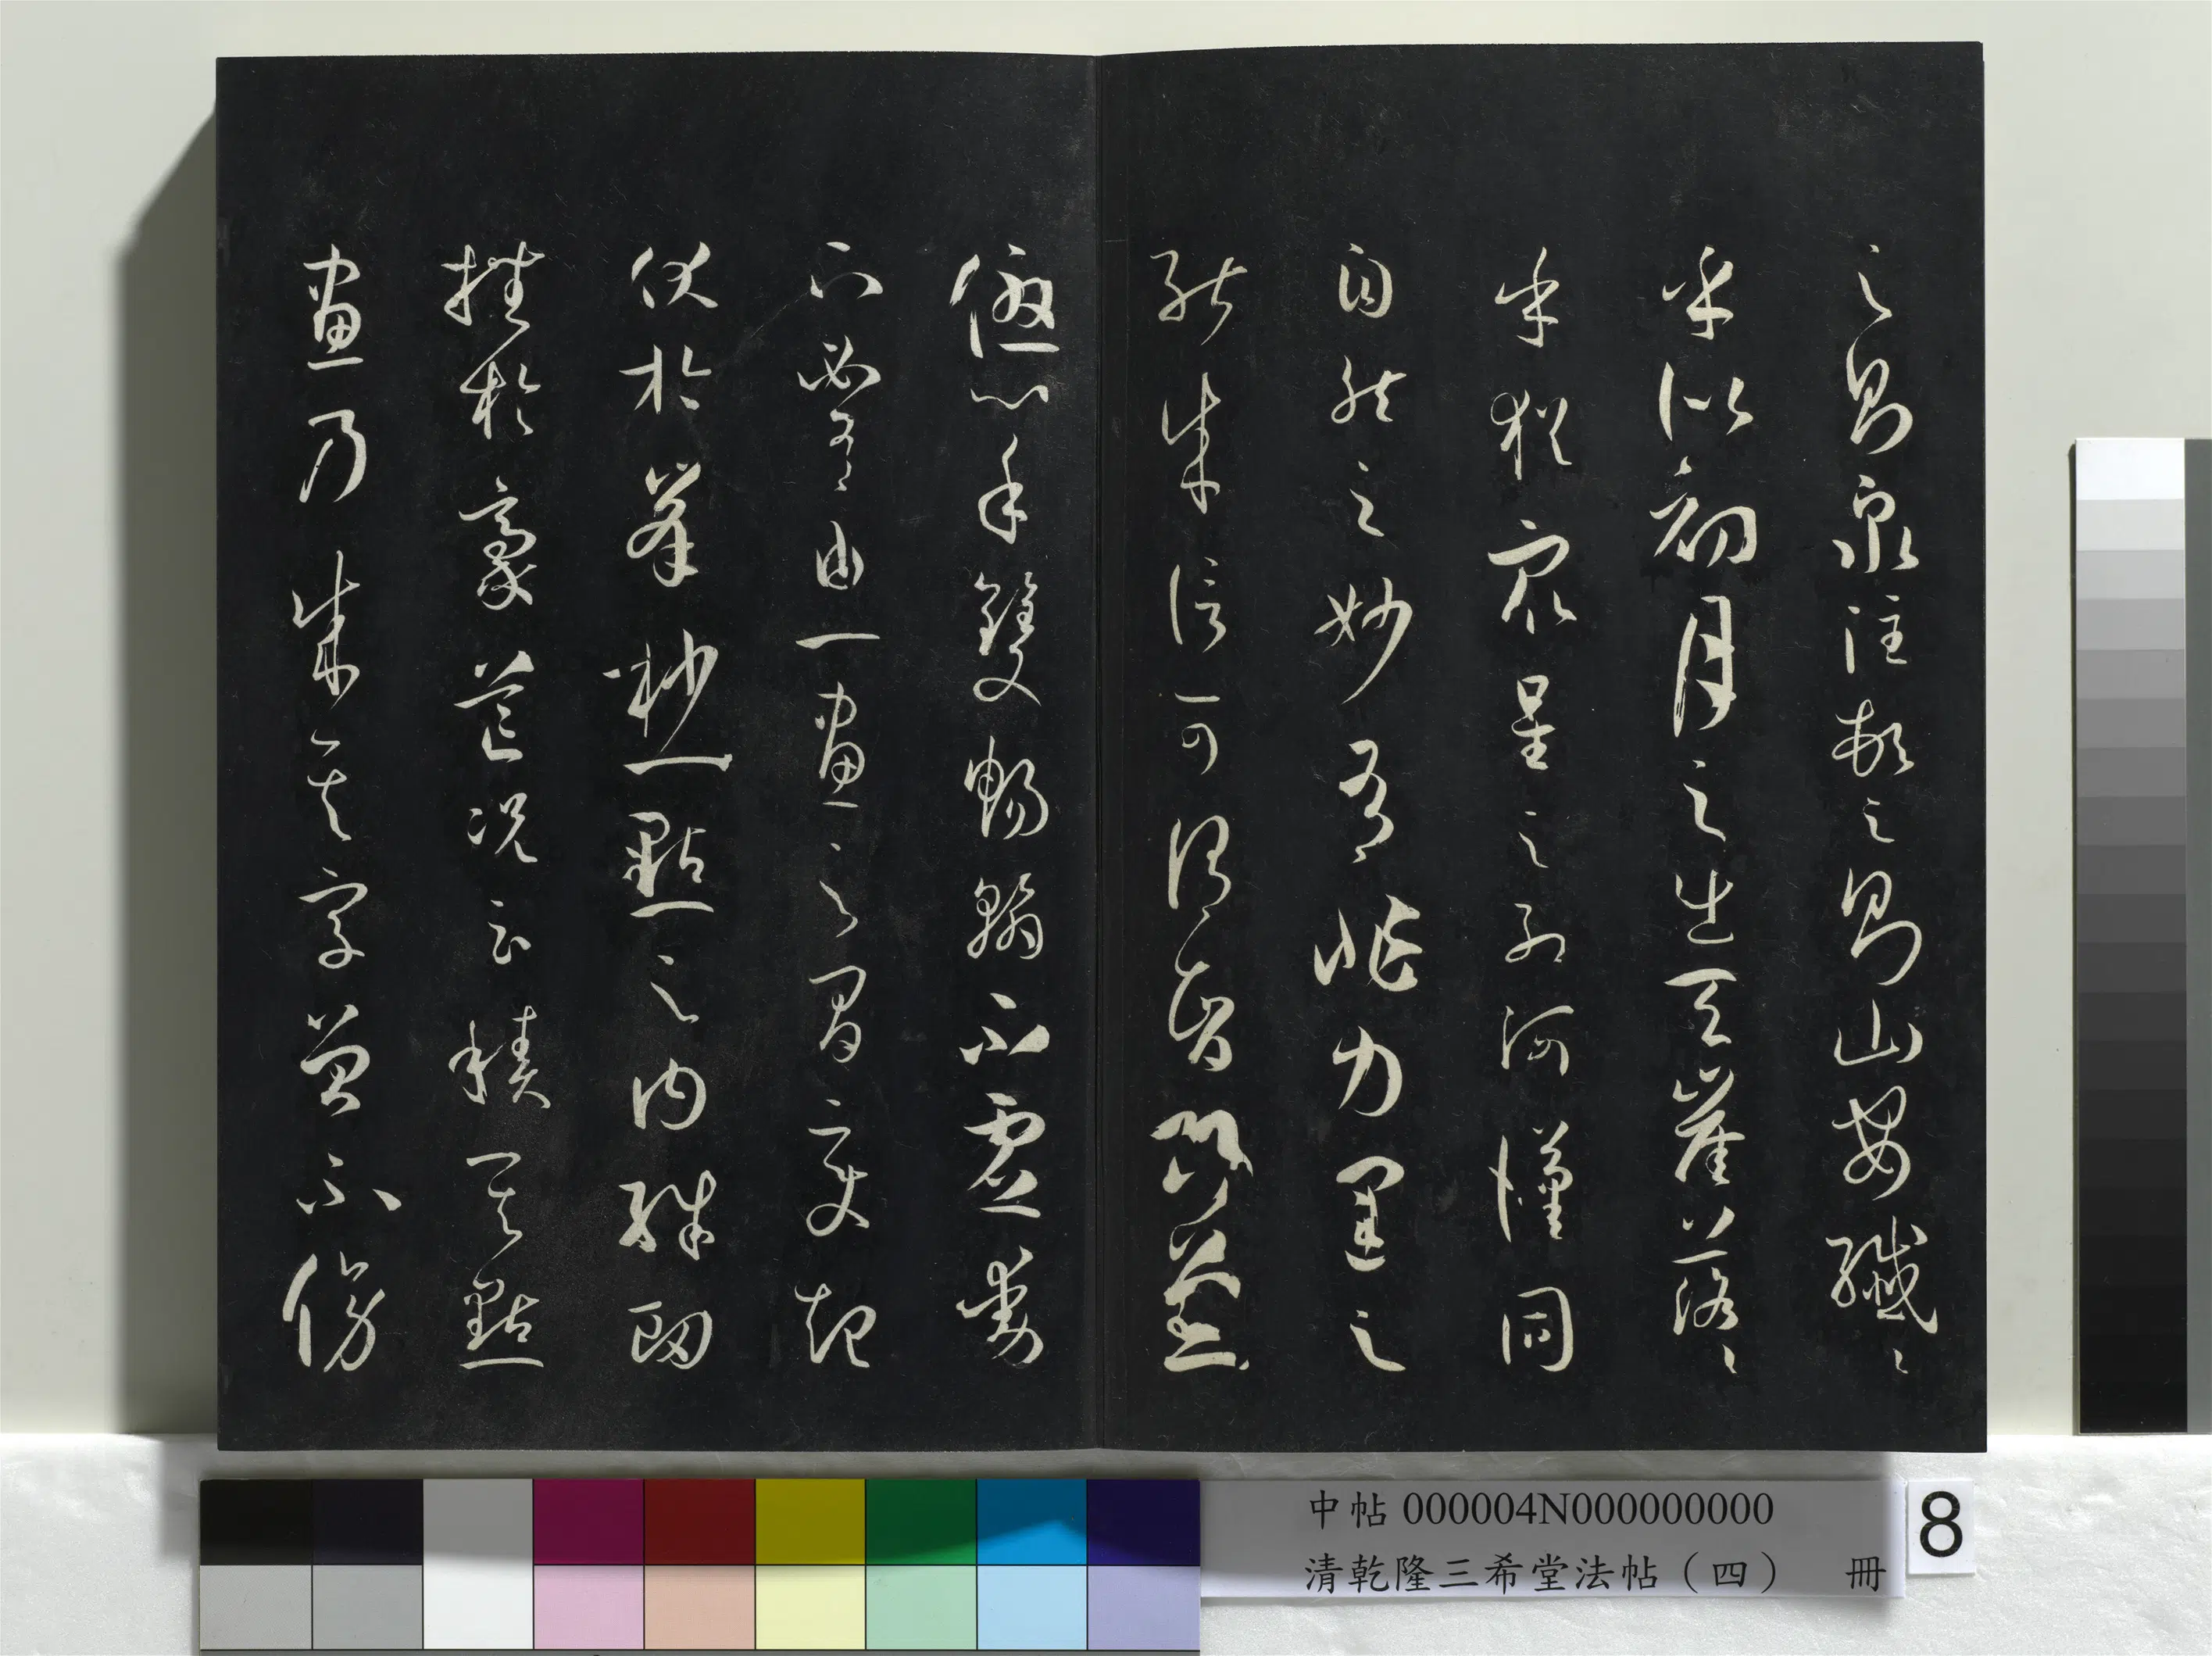 之則泉注頓之則山安纖〻
乎似初月之出天崖落〻
乎猶眾星之列河漢同
自然之妙有非力運之
能成信可謂智巧兼
優心手雙暢翰不虛動
下必有由一畫之間變起
伏於峯杪一點之內殊衄
挫於豪芒況云積其點
畫乃成其字曾不傍
中帖 000004N000000000
清乾隆三希堂法帖（四） 冊
8